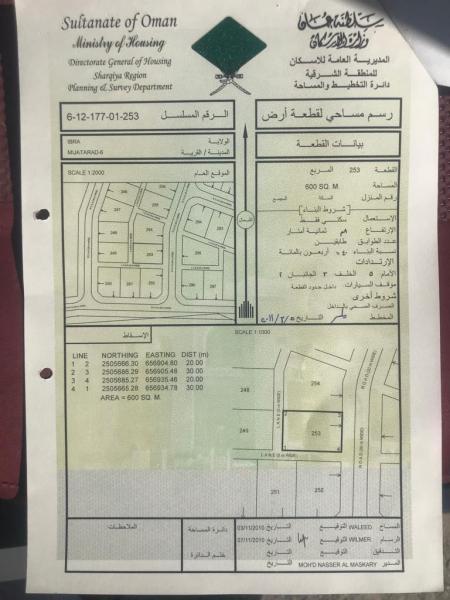 Sultanate of Oman
Ministry of Housing
Directorate General of Housing
Sharqiya Region
Planning & Survey Department
سلطنة عمان
وزارة الإسكان
المديرية العامة للاسكان
للمنطقة الشرقية
دائرة التخطيط والمساحة
رسم مساحي لقطعة أرض
6-12-177-01-253 الرقم المسلسل
بيانات القطعة
IBRA الولاية
MUATARAD-6 المدينة / القرية
SCALE 1:2000 الموقع العام
القطعة 253 المربع
المساحة 600 SQ. M.
رقم المنزل السكة المجمع
[ شروط البناء ]
الاستعمال سكني فقط
الارتفاع ٨م ثمانية أمتار
عدد الطوابق طابقين
نسبة البناء ٤٠٪ أربعون بالمائة
الإرتدادات
الأمام ٥ الخلف ٣ الجانبان ٢
موقف السيارات داخل حدود القطعة
شروط أخرى
الصرف الصحي بالداخل
المخطط التاريخ
الشمال
الإسقاط
SCALE 1:1000
LINE NORTHING EASTING DIST (m)
1 2 2505666.30 656904.60 20.00
2 3 2505686.29 656905.48 30.00
3 4 2505685.27 656935.46 20.00
4 1 2505665.28 656934.78 30.00
AREA = 600 SQ. M.
248
254
249
253
251
252
LANE (6 m WIDE)
LANE (6 m WIDE)
الملاحظات
دائرة المساحة
ختم الدائرة
المساح WALEED التوقيع التاريخ 03/11/2010
الرسام WILMER التوقيع التاريخ 07/11/2010
التدقيق التوقيع التاريخ
المدير MOH'D NASSER AL MASKARY التاريخ